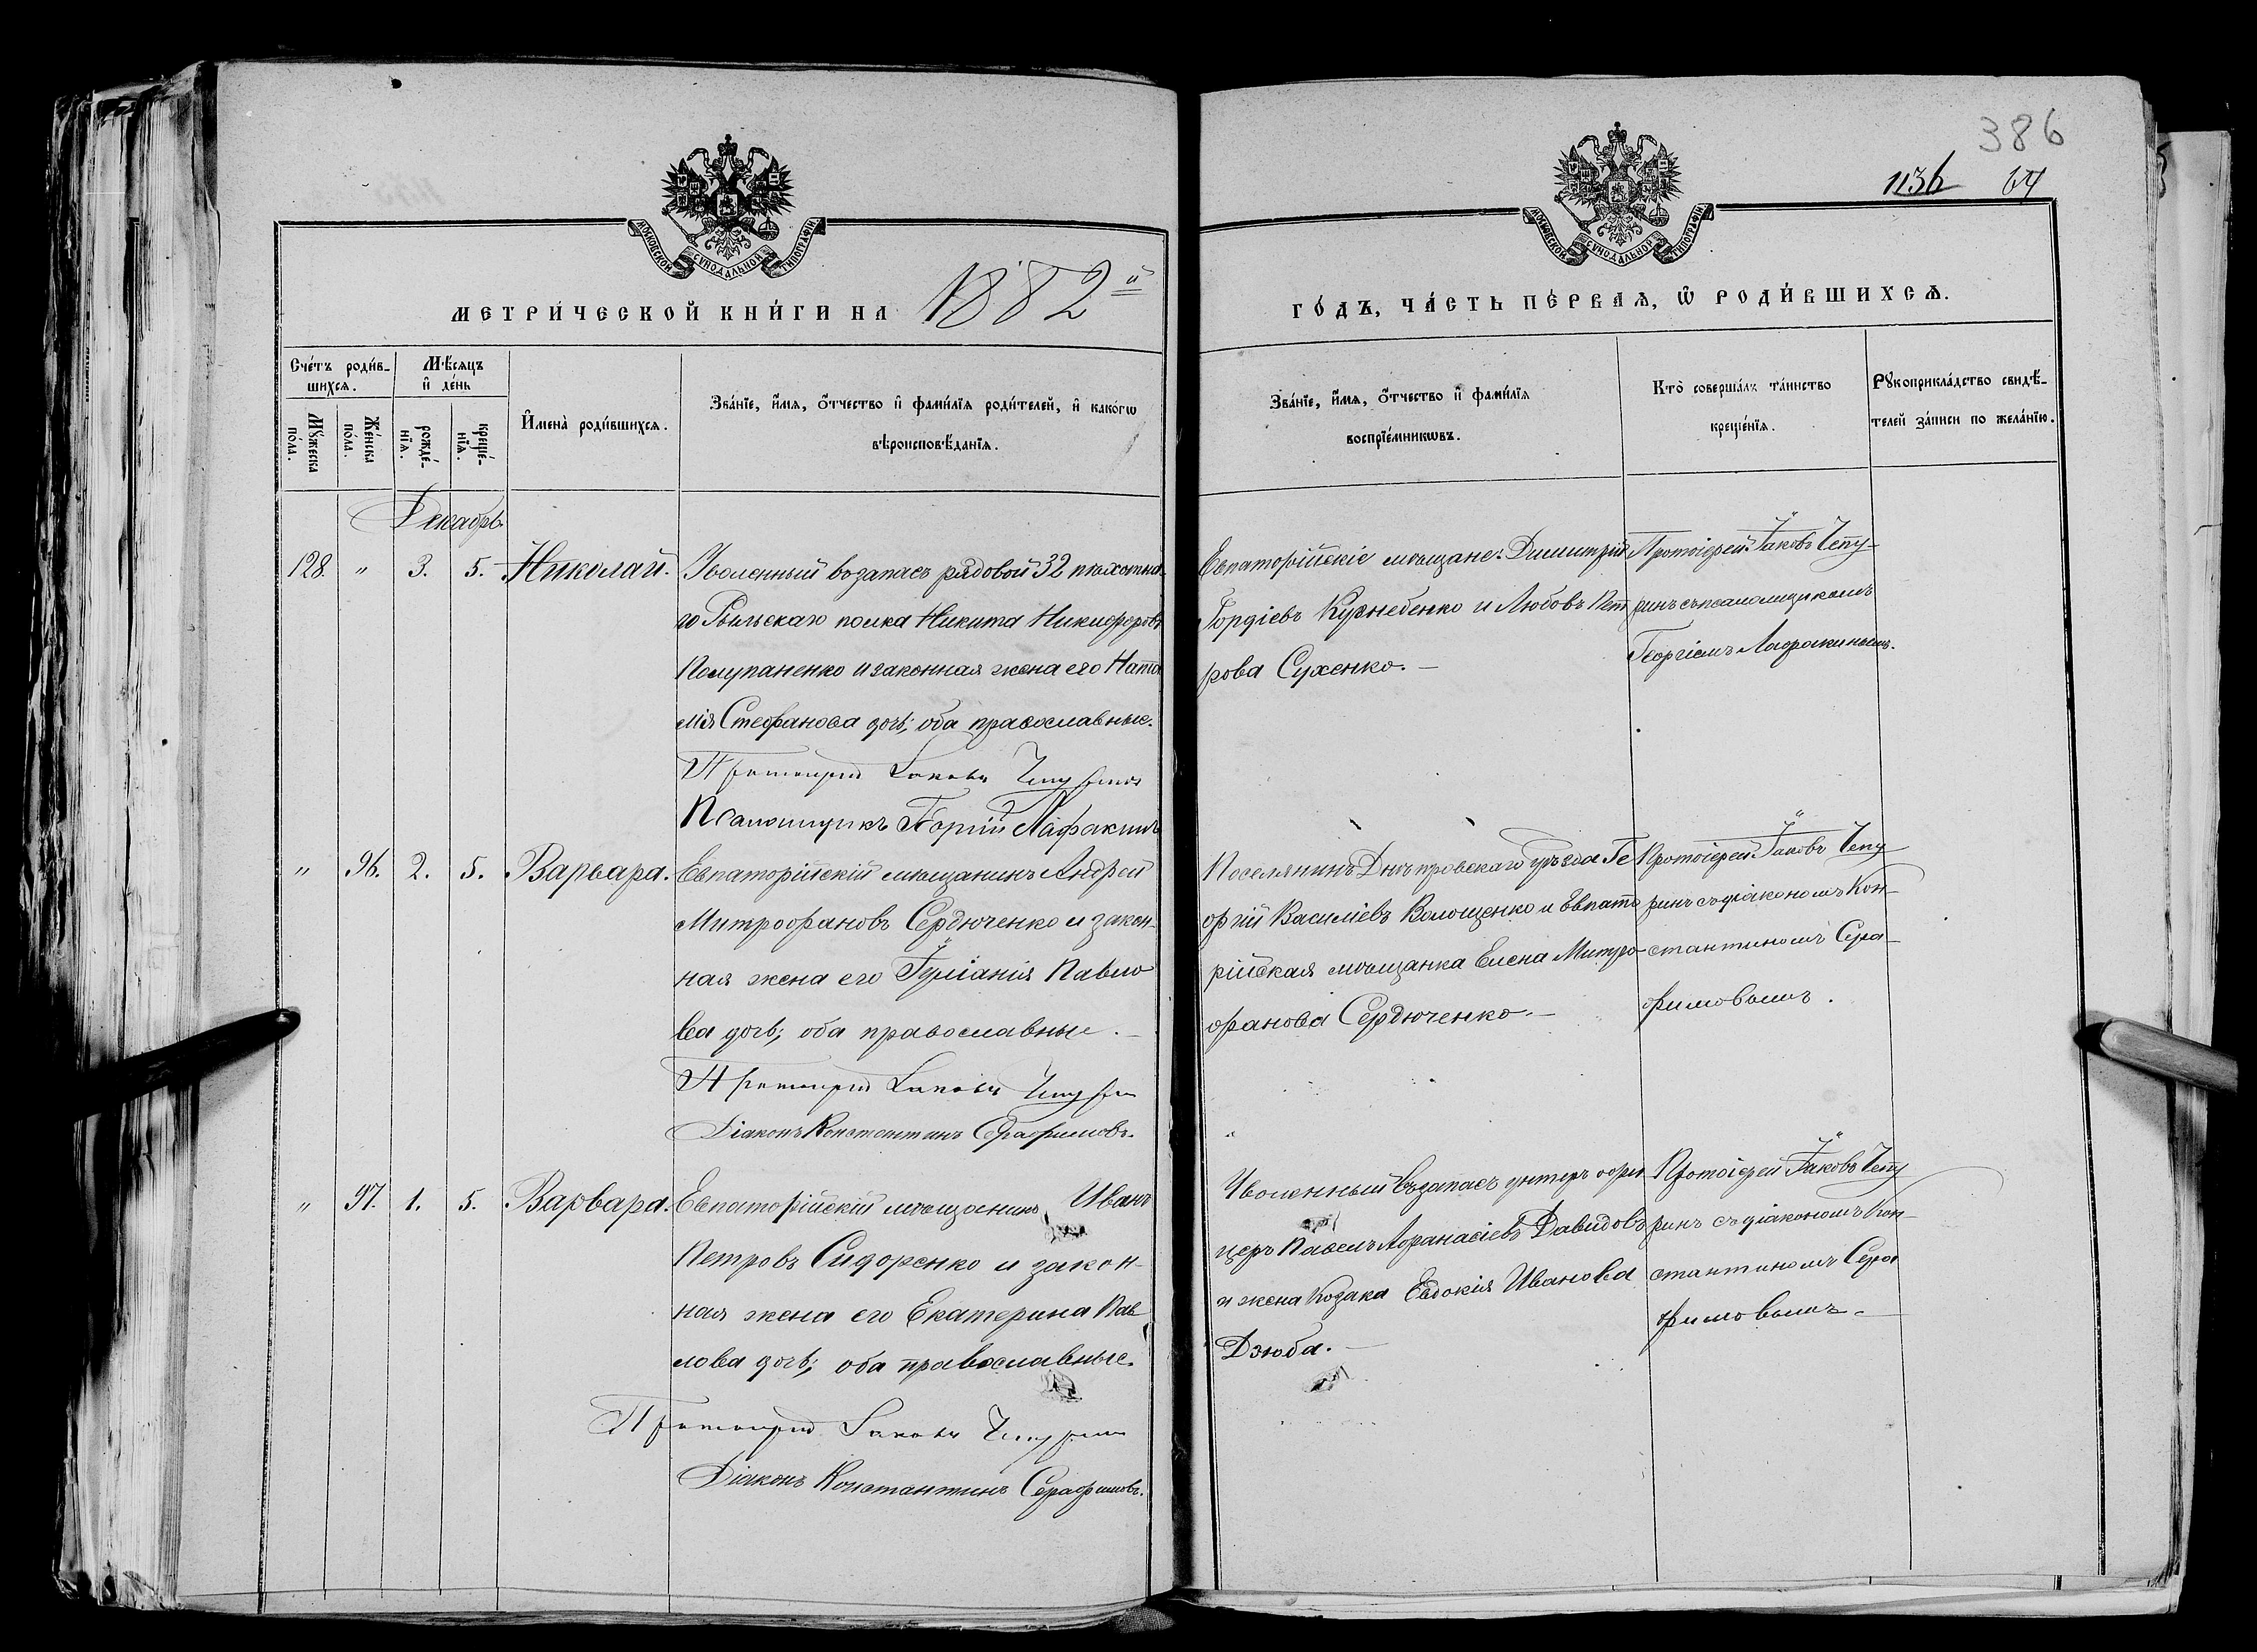 386
1136 64
МОСКОВСКОЙ СѴНОДАЛЬНОЙ ТИПОГРАФІИ
МОСКОВСКОЙ СѴНОДАЛЬНОЙ ТИПОГРАФІИ
МЕТРИ́ЧЕСКОЙ КНИ́ГИ НА 1882й
ГО́ДЪ, ЧА́СТЬ ПЕ́РВАѦ, Ѡ РОДИ́ВШИХСѦ.
Сче́тъ роди́в-
шихсѧ.
Мꙋ́жеска
по́ла.
Же́нска
по́ла.
Мѣ́сѧцъ
и҆ де́нь
рожде́-
нїѧ.
креще́-
нїѧ.
И҆мена̀ роди́вшихсѧ.
Зва́нїе, и҆́мѧ, о҆́тчество и҆ фами́лїѧ роди́телей, и҆ како́гѡ
вѣроисповѣ́данїѧ.
Зва́нїе, и҆́мѧ, о҆́тчество и҆ фами́лїѧ
воспрїе́мникѡвъ.
Кто̀ соверша́лъ та́инство
креще́нїѧ.
Рꙋкоприкла́дство свидѣ́-
телей за́писи по жела́нїю.
Декабрь
128. " 3. 5. Николай.
Уволенный возапасъ рядовой 32 пѣхотна-
го Рыльскаго полка Никита Никифоровъ
Полупаненко и законная жена его Ната
лія Стефанова дочь; оба православные.
Протоіерей Іаковъ Чепуринъ
Псаломщикъ Георгій Лафакинъ
Евпаторійскіе мѣщане: Димитрій
Гордіевъ Кухнебенко и Любовь Пет
рова Сухенко. –
Протоіерей Іаковъ Чепу-
ринъ съ псаломщикомъ
Георгіемъ Лафакинымъ.
" 96. 2. 5. Варвара.
Евпаторійскій мѣщанинъ Андрей
Митрофановъ Сердюченко и закон-
ная жена его Іуліанія Павло
ва дочь; оба православные. –
Протоіерей Іаковъ Чепурин
Діаконъ Константинъ Серафимовъ.
Поселянинъ Днѣпровскаго уѣзда Ге
оргій Василіевъ Волощенко и Евпато
рійская мѣщанка Елена Митро-
фанова Сердюченко. –
Протоіерей Іаковъ Чепу
ринъ съ діакономъ Кон-
стантиномъ Сера-
фимовымъ.
" 97. 1. 5. Варвара.
Евпаторійскій мѣщанинъ Иванъ
Петровъ Сидоренко и закон-
ная жена его Екатерина Пав
лова дочь; оба православные.
Протоіерей Іаковъ Чепурин
Діаконъ Константинъ Серафимовъ.
Уволенный въ запасъ унтеръ офи
церъ Павелъ Афанасіевъ Давидовъ
и жена козака Евдокія Иванова
Дзюба. –
Протоіерей Іаковъ Чепу
ринъ съ діакономъ Кон-
стантиномъ Сера
фимовымъ. –